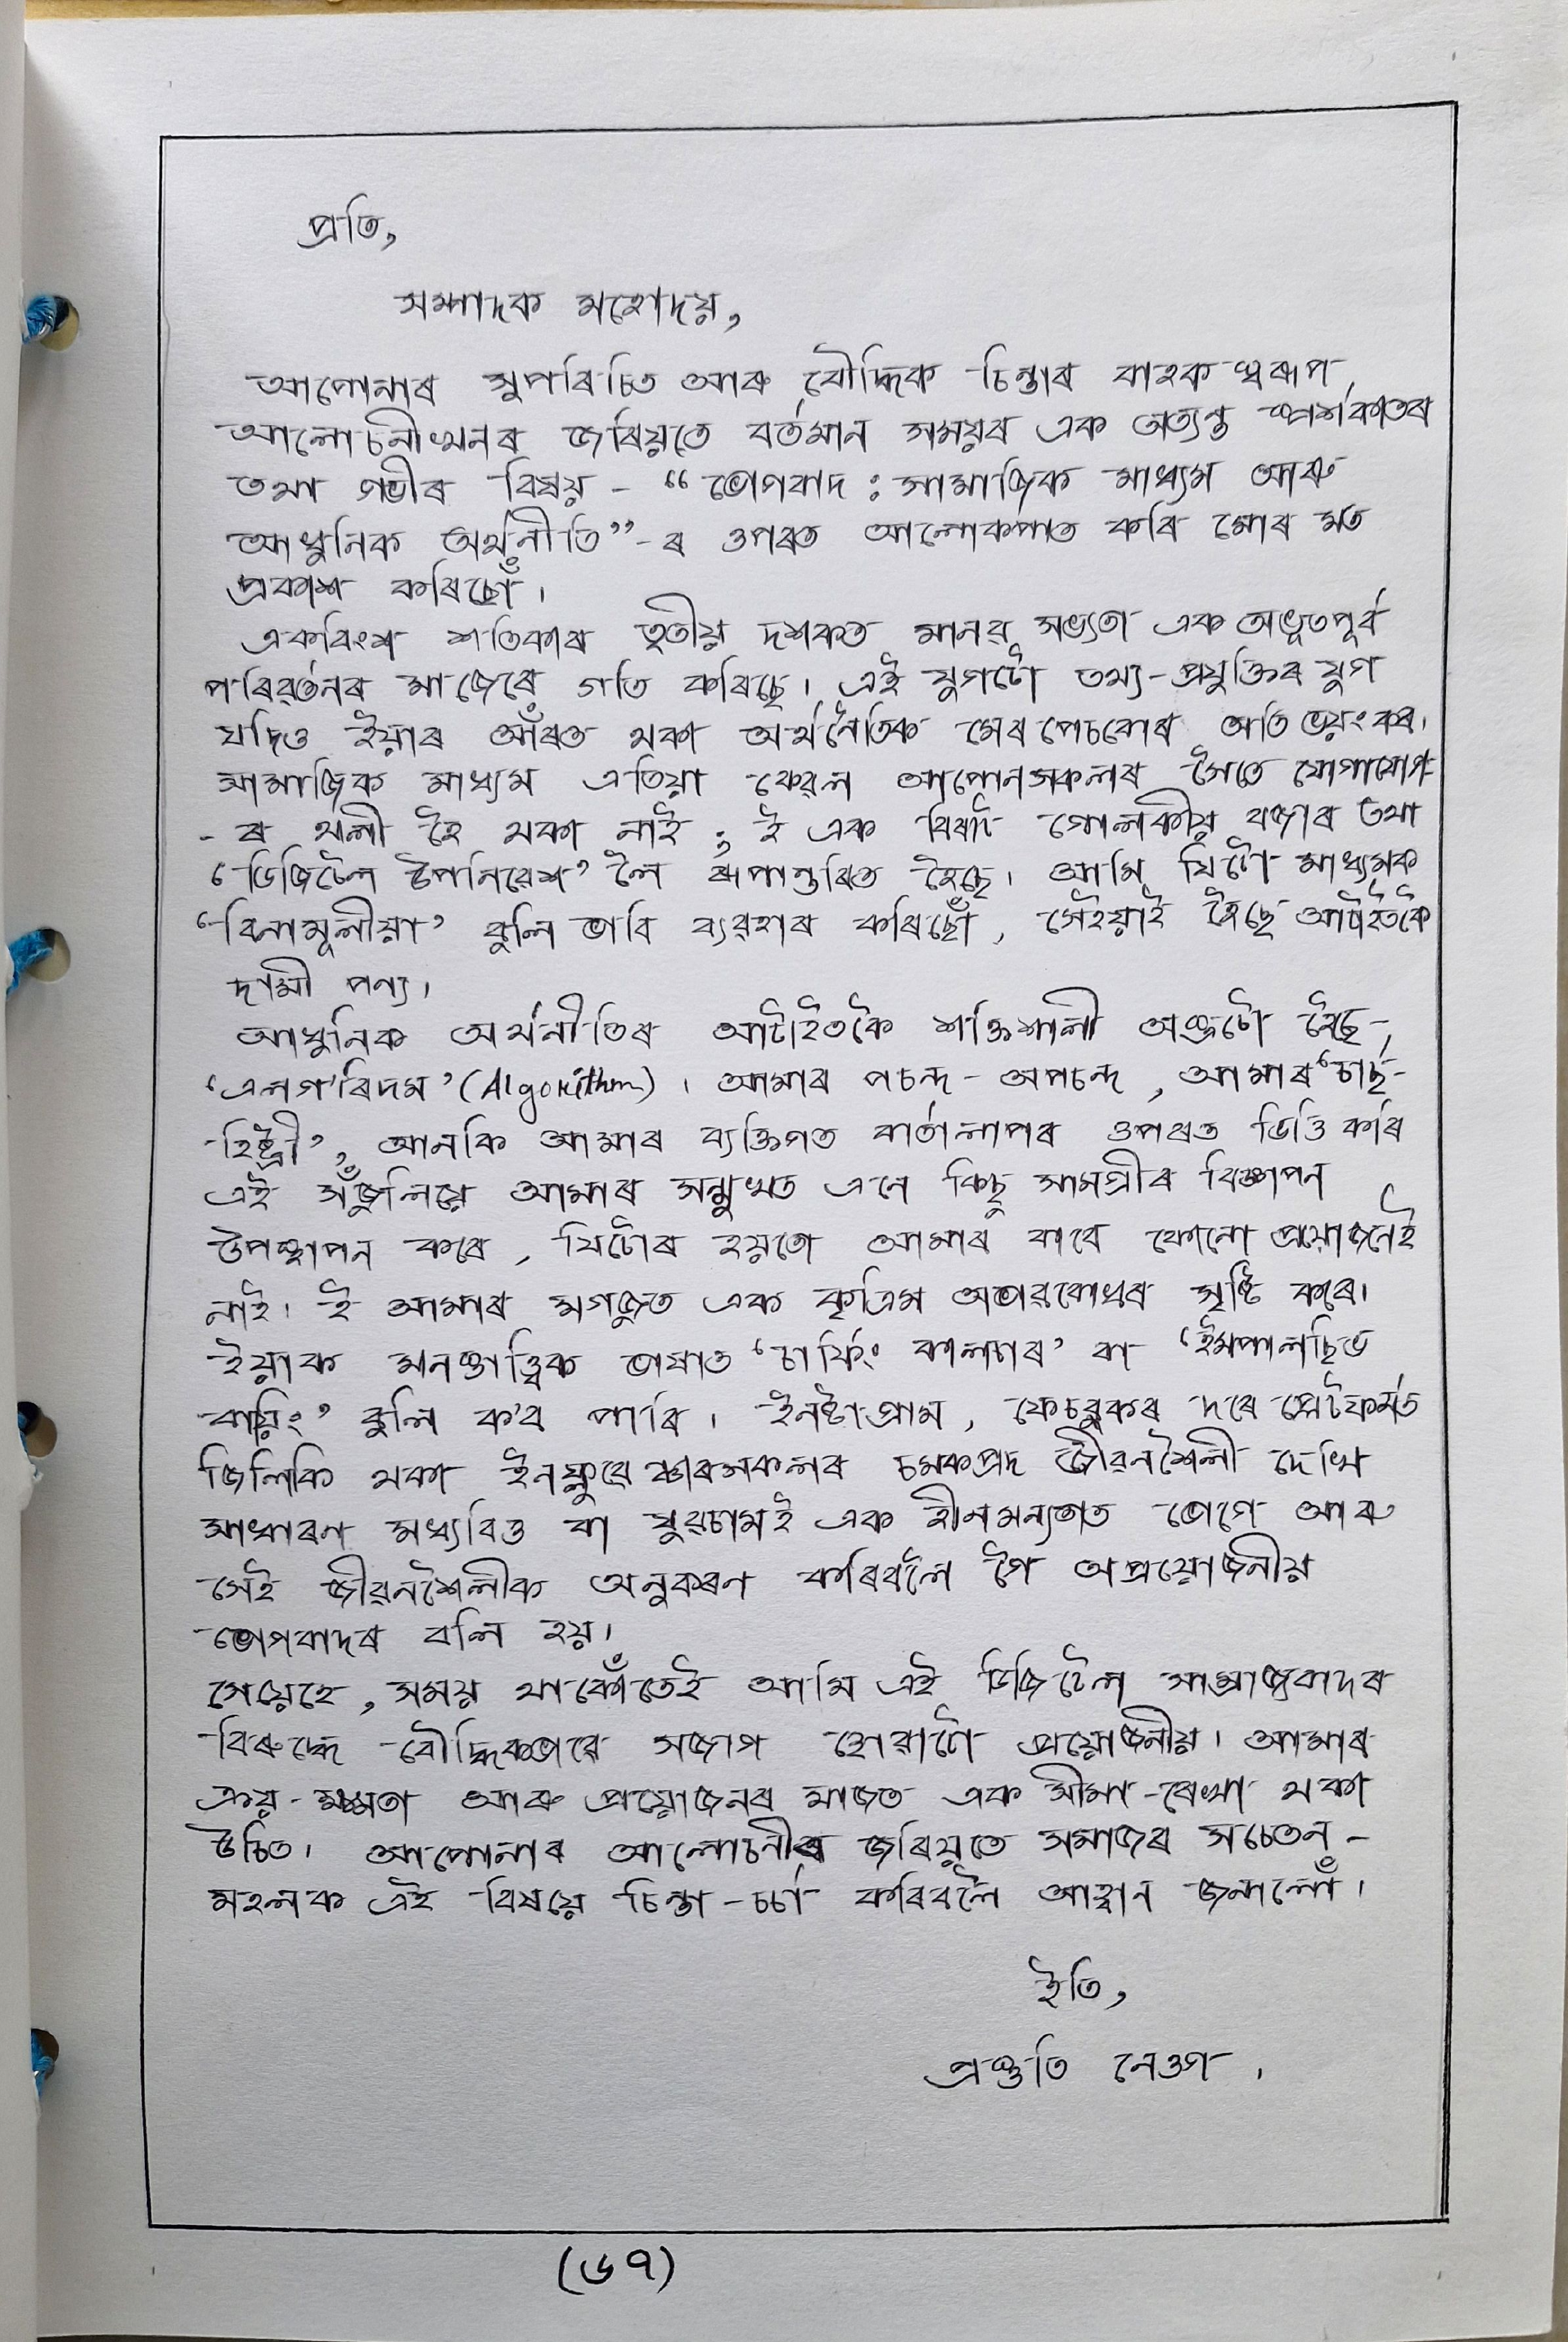 প্ৰতি,
সম্পাদক মহোদয়,
আপোনাৰ সুপৰিচিত আৰু বৌদ্ধিক চিন্তাৰ বাহক স্বৰূপ
আলোচনীখনৰ জৰিয়তে বৰ্তমান সময়ৰ এক অত্যন্ত স্পৰ্শকাতৰ
তথা গভীৰ বিষয় - “ভোগবাদ : সামাজিক মাধ্যম আৰু
আধুনিক অৰ্থনীতি”-ৰ ওপৰত আলোকপাত কৰি মোৰ মত
প্ৰকাশ কৰিছোঁ।
একবিংশ শতিকাৰ তৃতীয় দশকত মানৱ সভ্যতা এক অভূতপূৰ্ব
পৰিৱৰ্তনৰ মাজেৰে গতি কৰিছে। এই যুগটো তথ্য-প্ৰযুক্তিৰ যুগ
যদিও ইয়াৰ আঁৰত থকা অৰ্থনৈতিক মেৰপেচবোৰ অতি ভয়ংকৰ।
সামাজিক মাধ্যম এতিয়া কেৱল আপোনসকলৰ সৈতে যোগাযোগ-
-ৰ থলী হৈ থকা নাই ; ই এক বিৰাট গোলকীয় বজাৰ তথা
‘ডিজিটেল উপনিৱেশ’ লৈ ৰূপান্তৰিত হৈছে। আমি যিটো মাধ্যমক
‘বিনামূলীয়া’ বুলি ভাবি ব্যৱহাৰ কৰিছোঁ, সেইয়াই হৈছে আটাইতকৈ
দামী পণ্য।
আধুনিক অৰ্থনীতিৰ আটাইতকৈ শক্তিশালী অস্ত্ৰটো হৈছে-
‘এলগ'ৰিদম’ (Algorithm)। আমাৰ পচন্দ-অপচন্দ, আমাৰ ‘চাৰ্চ-
হিষ্ট্ৰী’, আনকি আমাৰ ব্যক্তিগত বাৰ্তালাপৰ ওপৰত ভিত্তি কৰি
এই সঁজুলিয়ে আমাৰ সন্মুখত এনে কিছু সামগ্ৰীৰ বিজ্ঞাপন
উপস্থাপন কৰে, যিটোৰ হয়তো আমাৰ বাবে কোনো প্ৰয়োজনেই
নাই। ই আমাৰ মগজুত এক কৃত্ৰিম অভাৱবোধৰ সৃষ্টি কৰে।
ইয়াক মনস্তাত্ত্বিক ভাষাত ‘চাৰ্ফিং কালচাৰ’ বা ‘ইমপালচিভ
বায়িং’ বুলি ক'ব পাৰি। ইনষ্টাগ্ৰাম, ফেচবুকৰ দৰে প্লেটফৰ্মত
জিলিকি থকা ইনফ্লুৱেঞ্চাৰসকলৰ চমকপ্ৰদ জীৱনশৈলী দেখি
সাধাৰণ মধ্যবিত্ত বা যুৱচামই এক হীনমন্যতাত ভোগে আৰু
সেই জীৱনশৈলীক অনুকৰণ কৰিবলৈ গৈ অপ্ৰয়োজনীয়
ভোগবাদৰ বলি হয়।
সেয়েহে, সময় থাকোঁতেই আমি এই ডিজিটেল সাম্ৰাজ্যবাদৰ
বিৰুদ্ধে বৌদ্ধিকভাৱে সজাগ হোৱাটো প্ৰয়োজনীয়। আমাৰ
ক্ৰয়-ক্ষমতা আৰু প্ৰয়োজনৰ মাজত এক সীমা-ৰেখা থকা
উচিত। আপোনাৰ আলোচনীৰ জৰিয়তে সমাজৰ সচেতন-
মহলক এই বিষয়ে চিন্তা-চৰ্চা কৰিবলৈ আহ্বান জনালোঁ।
ইতি,
প্ৰস্তুতি নেওগ।
(৬৭)